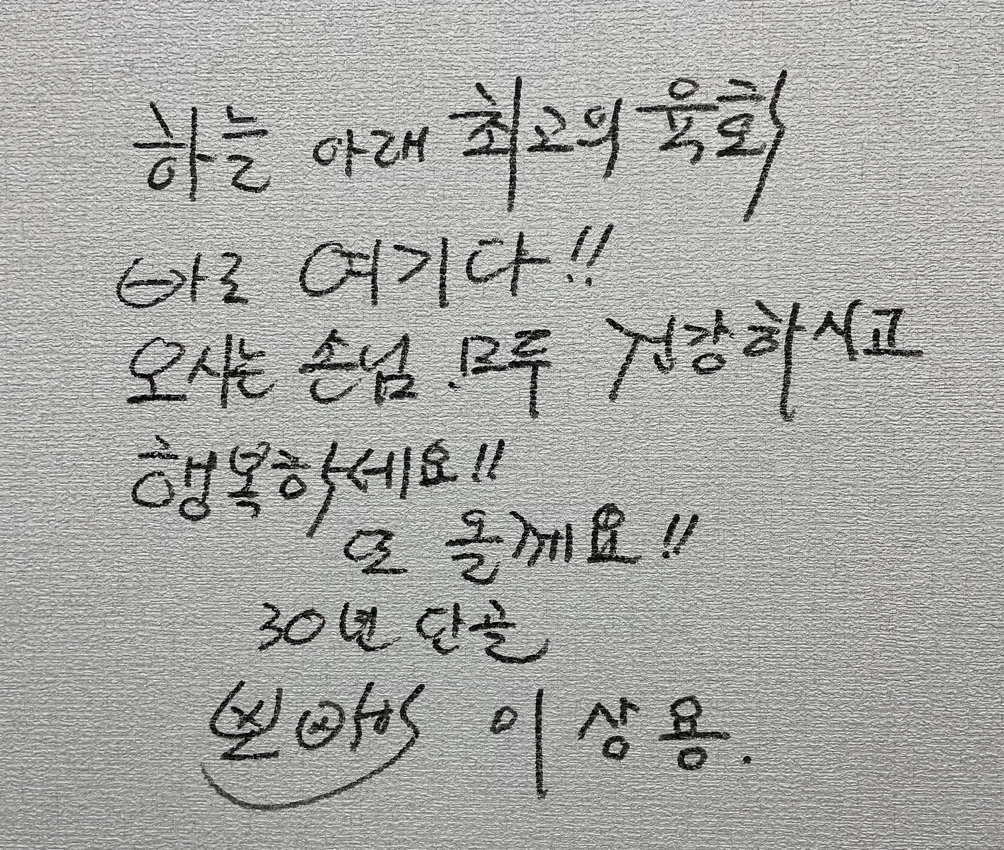 하늘 아래 최고의 육회
바로 여기다!!
오시는 손님 모두 건강하시고
행복하세요!!
또 올게요!!
30년 단골
뽀빠이 이상용.